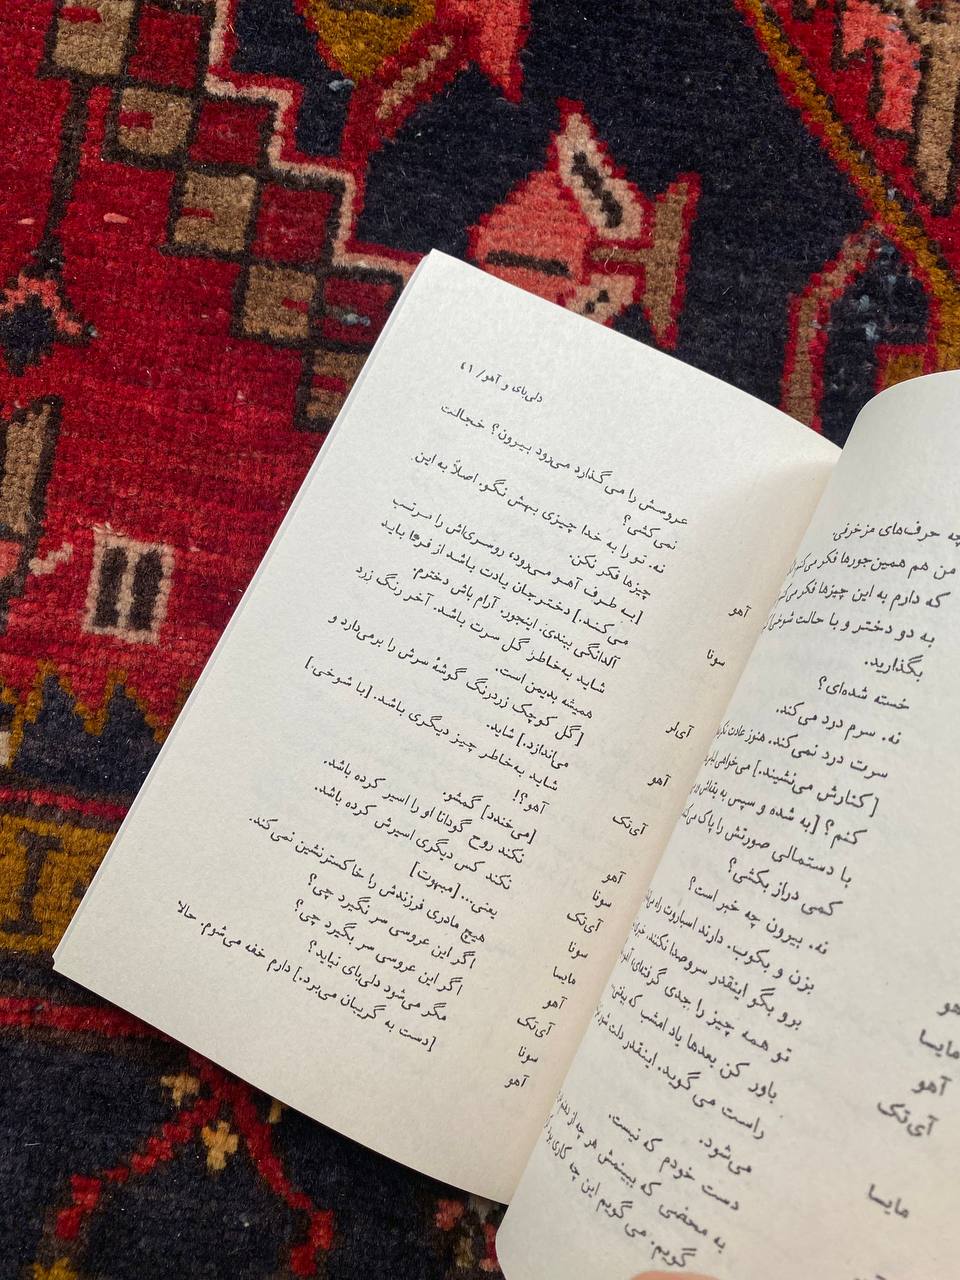 دلی‌بای و آهو/ ۴۱
عروسش را می‌گذارد می‌رود بیرون؟ خجالت
نمی‌کشی؟
آهو نه. تو را به خدا چیزی بهش نگو. اصلاً به این
چیزها فکر نکن.
سونا [به طرف آهو می‌رود، روسری‌اش را مرتب
می‌کند.] دخترجان یادت باشد از فردا باید
آلدانگی ببندی. اینجور. آرام باش دخترم.
آی‌لر شاید به‌خاطر گل سرت باشد. آخر رنگ زرد
همیشه بدیمن است.
آهو [گل کوچک زردرنگ گوشهٔ سرش را برمی‌دارد و
می‌اندازد.] شاید.
آی‌تک شاید به‌خاطر چیز دیگری باشد. [با شوخی.]
آهو؟!
آهو [می‌خندد] گمشو.
سونا نکند روح گودانا او را اسیر کرده باشد.
آی‌تک نکند کس دیگری اسیرش کرده باشد.
سونا یعنی... [مبهوت]
مایسا هیچ مادری فرزندش را خاکسترنشین نمی‌کند.
آهو اگر این عروسی سر نگیرد چی؟
آی‌تک اگر این عروسی سر بگیرد چی؟
سونا مگر می‌شود دلی‌بای نیاید؟
آهو [دست به گریبان می‌برد.] دارم خفه می‌شوم. حالا
چه حرف‌های مزخرفی
من هم همین‌جورها فکر می‌کنم
که دارم به این چیزها فکر می‌کنم
به دو دختر و با حالت شوخی
بگذارید.
خسته شده‌ای؟
نه. سرم درد می‌کند.
سرت درد نمی‌کند. هنوز عادت
[کنارش می‌نشیند.] می‌خواهی
کنم؟ [به شده و سپس به
با دستمالی صورتش را پاک
کمی دراز بکشی؟
آهو نه. بیرون چه خبر است؟
مایسا بزن و بکوب. دارند اسباروت
آهو برو بگو اینقدر سروصدا نکنند.
آی‌تک تو همه چیز را جدی گرفته‌ای،
باور کن بعدها یاد امشب که
مایسا راست می‌گوید. اینقدر دلت
می‌شود.
دست خودم که نیست.
به محضی که ببینمش هر چه از
گویم. می‌گویم این چه کاری